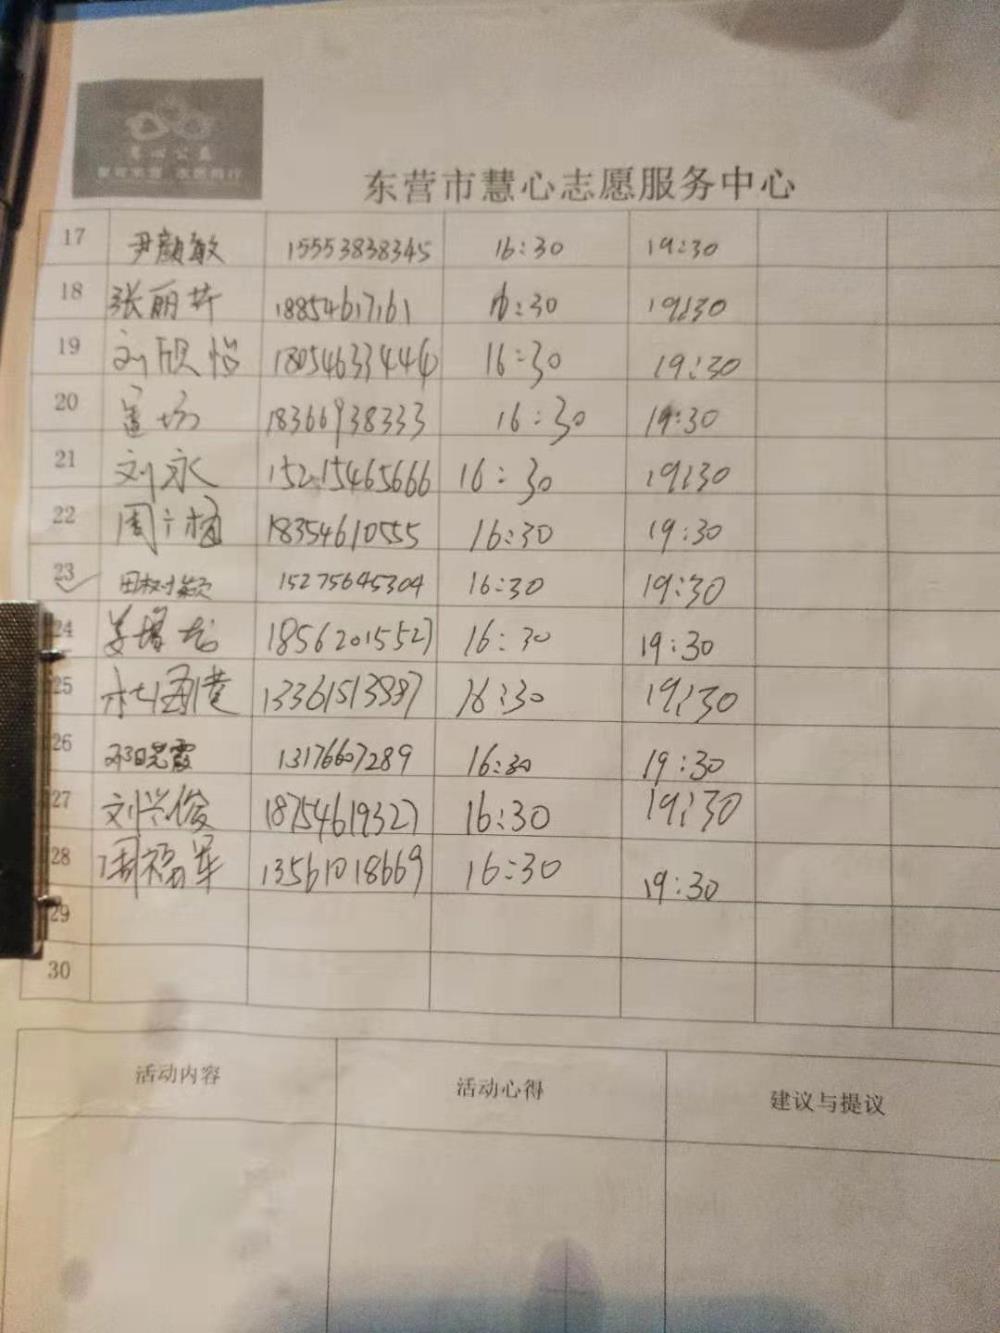 慧心公益
东营市慧心志愿服务中心
17 尹颜敏 15553838345 16:30 19:30
18 张丽芹 18854617161 16:30 19:30
19 刘欣怡 18054633444 16:30 19:30
20 18366938333 16:30 19:30
21 刘永 15215465666 16:30 19:30
22 周 18354610555 16:30 19:30
23 田树 15275645304 16:30 19:30
24 姜增 18562015527 16:30 19:30
25 杜 13361513987 16:30 19:30
26 邓晓霞 13176607289 16:30 19:30
27 刘兴俊 18754619327 16:30 19:30
28 周福军 13561018669 16:30 19:30
29
30
活动内容 活动心得 建议与提议